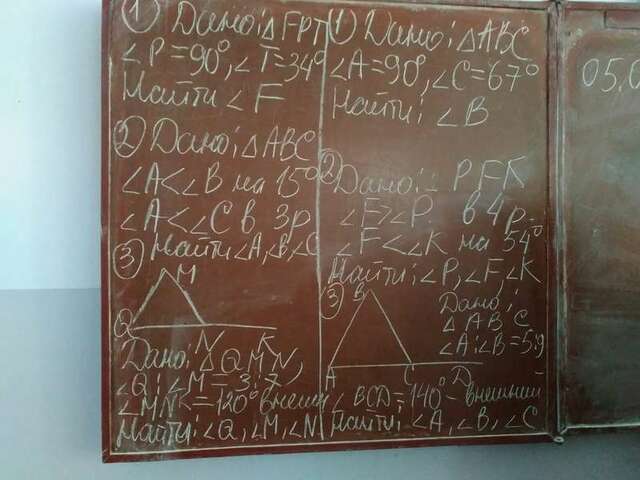 1) Дано: △FPT
∠P=90°, ∠T=34°
Найти ∠F
2) Дано: △ABC
∠A<∠B на 15°
∠A<∠C в 3р
Найти ∠A, ∠B, ∠C
3)
M
Q
N
K
Дано: △QMN,
∠Q:∠M=3:7,
∠MNK=120° внешн
Найти: ∠Q, ∠M, ∠N
1) Дано: △ABC
∠A=90°, ∠C=67°
Найти: ∠B
2) Дано: △ PFK
∠F>∠P в 4р.
∠F<∠K на 54°
Найти: ∠P, ∠F, ∠K
3)
B
A
C
D
Дано:
△ABC
∠A:∠B=5:9
∠BCD=140°- внешний
Найти: ∠A, ∠B, ∠C